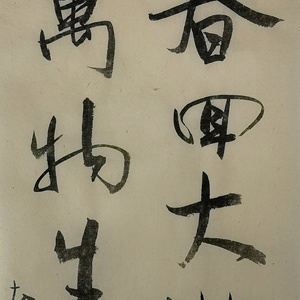 春回大
萬物生